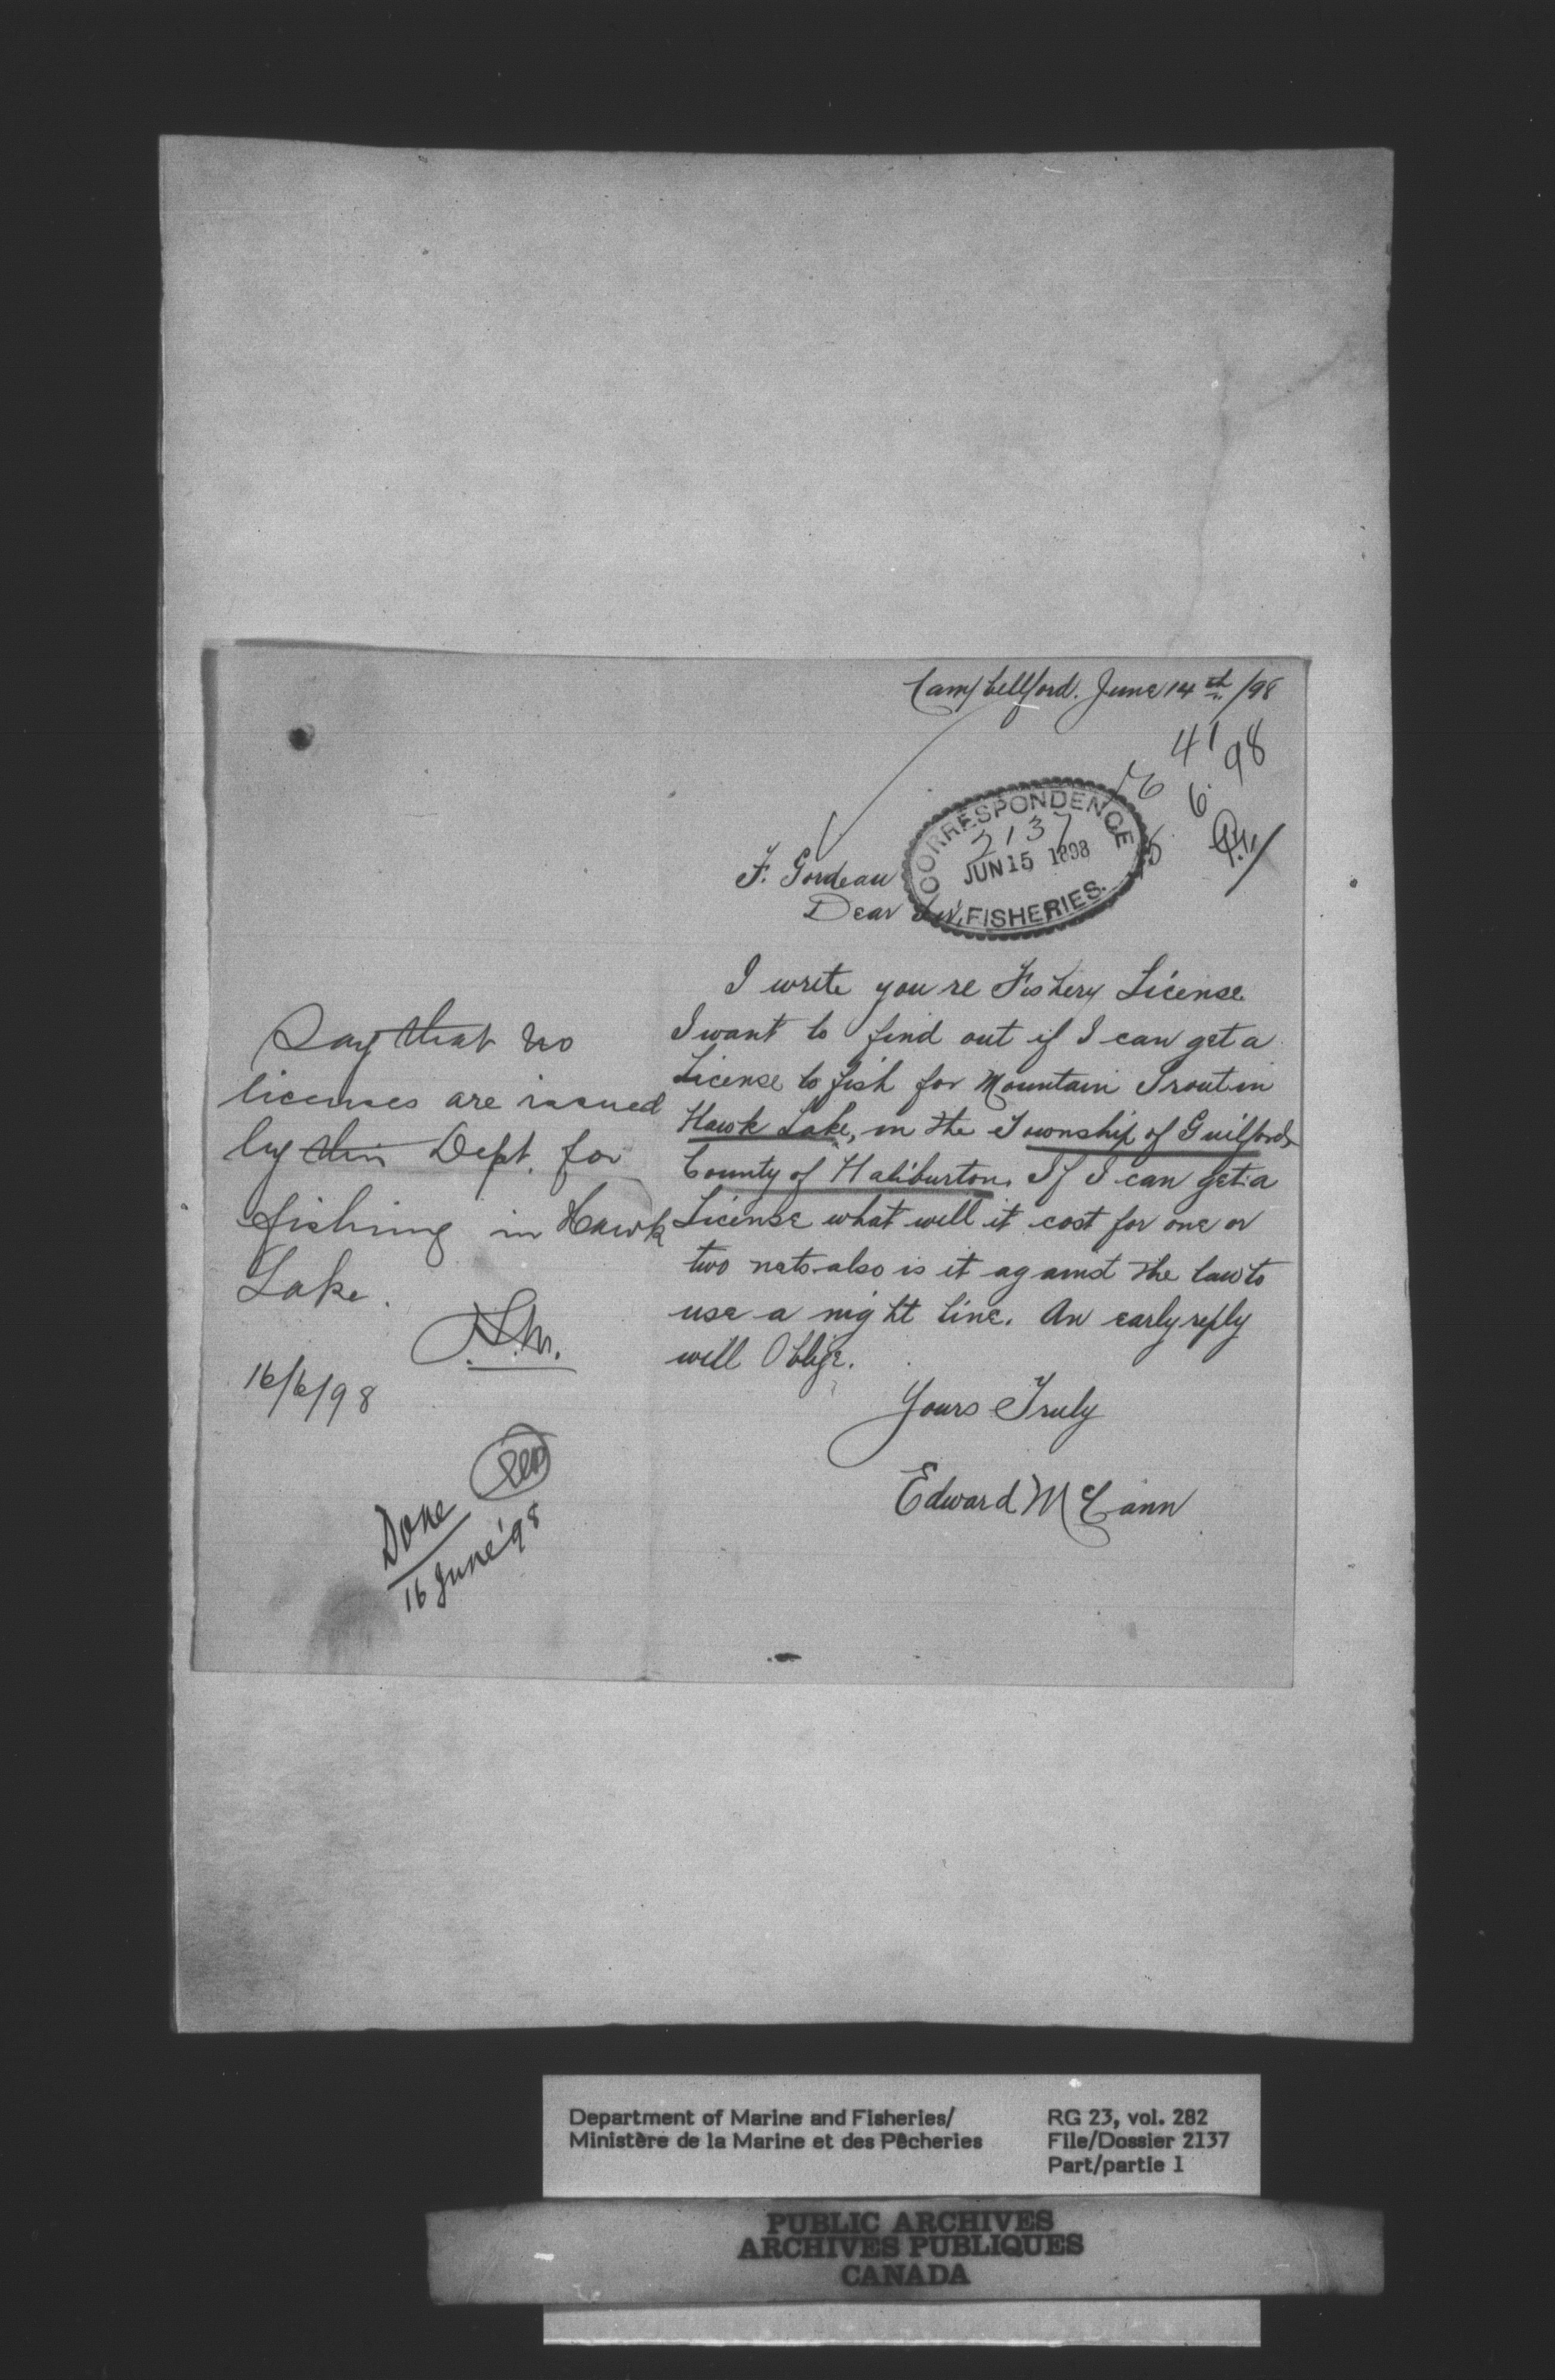 Campbellford. June 14th /98
41 98
6
CORRESPONDENCE
2137
JUN 15 1898
FISHERIES.
F. Gordeau
Dear Sir,
I write you re Fishery License
I want to find out if I can get a
License to fish for Mountain Trout in
Hawk Lake, in the Township of Guilford,
County of Haliburton. If I can get a
License what will it cost for one or
two nets also is it against the law to
use a night line. An early reply
will Oblige.
Yours Truly
Edward McCann
Say that no
licenses are issued
by this Dept. for
fishing in Hawk
Lake.
16/6/98
Done
16 June '98
Department of Marine and Fisheries/
Ministère de la Marine et des Pêcheries
RG 23, vol. 282
File/Dossier 2137
Part/partie 1
PUBLIC ARCHIVES
ARCHIVES PUBLIQUES
CANADA